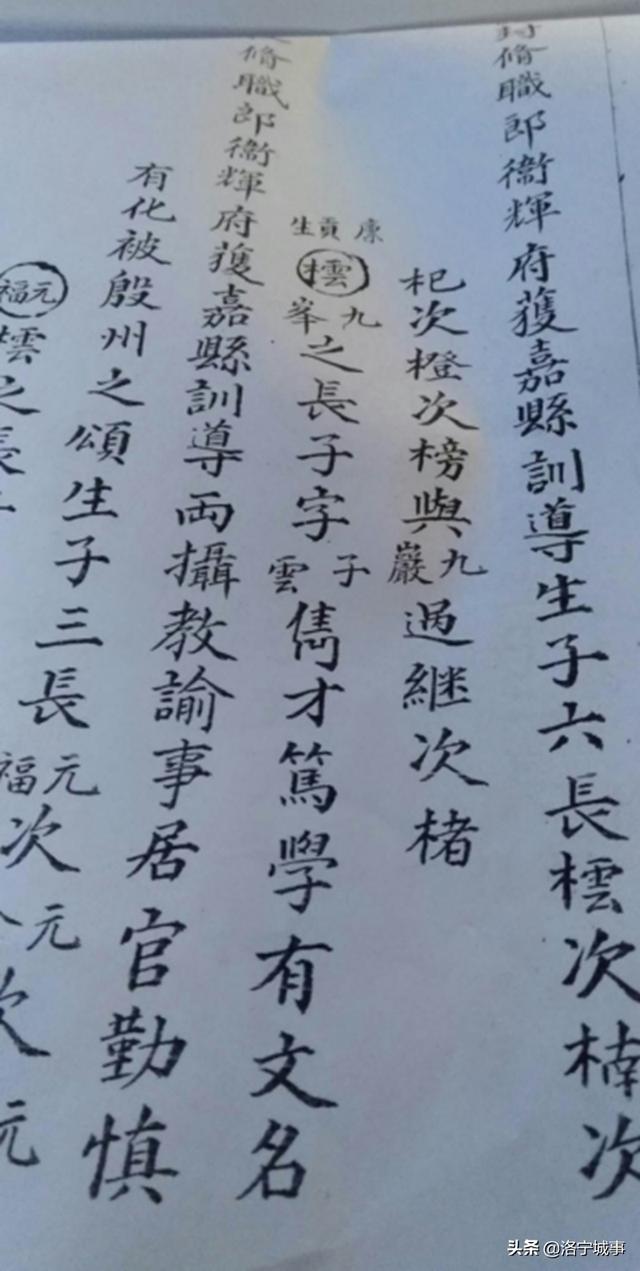 封脩職郎衞輝府獲嘉縣訓導生子六長橒次楠次
杞次橙次榜與九巖過継次楮
康貢生
橒九峯之長子字子雲雋才篤學有文名
脩職郎衞輝府獲嘉縣訓導両攝教諭事居官勤慎
有化被殷州之頌生子三長元福次元
次元
元福橒之長子
头条 @洛宁城事